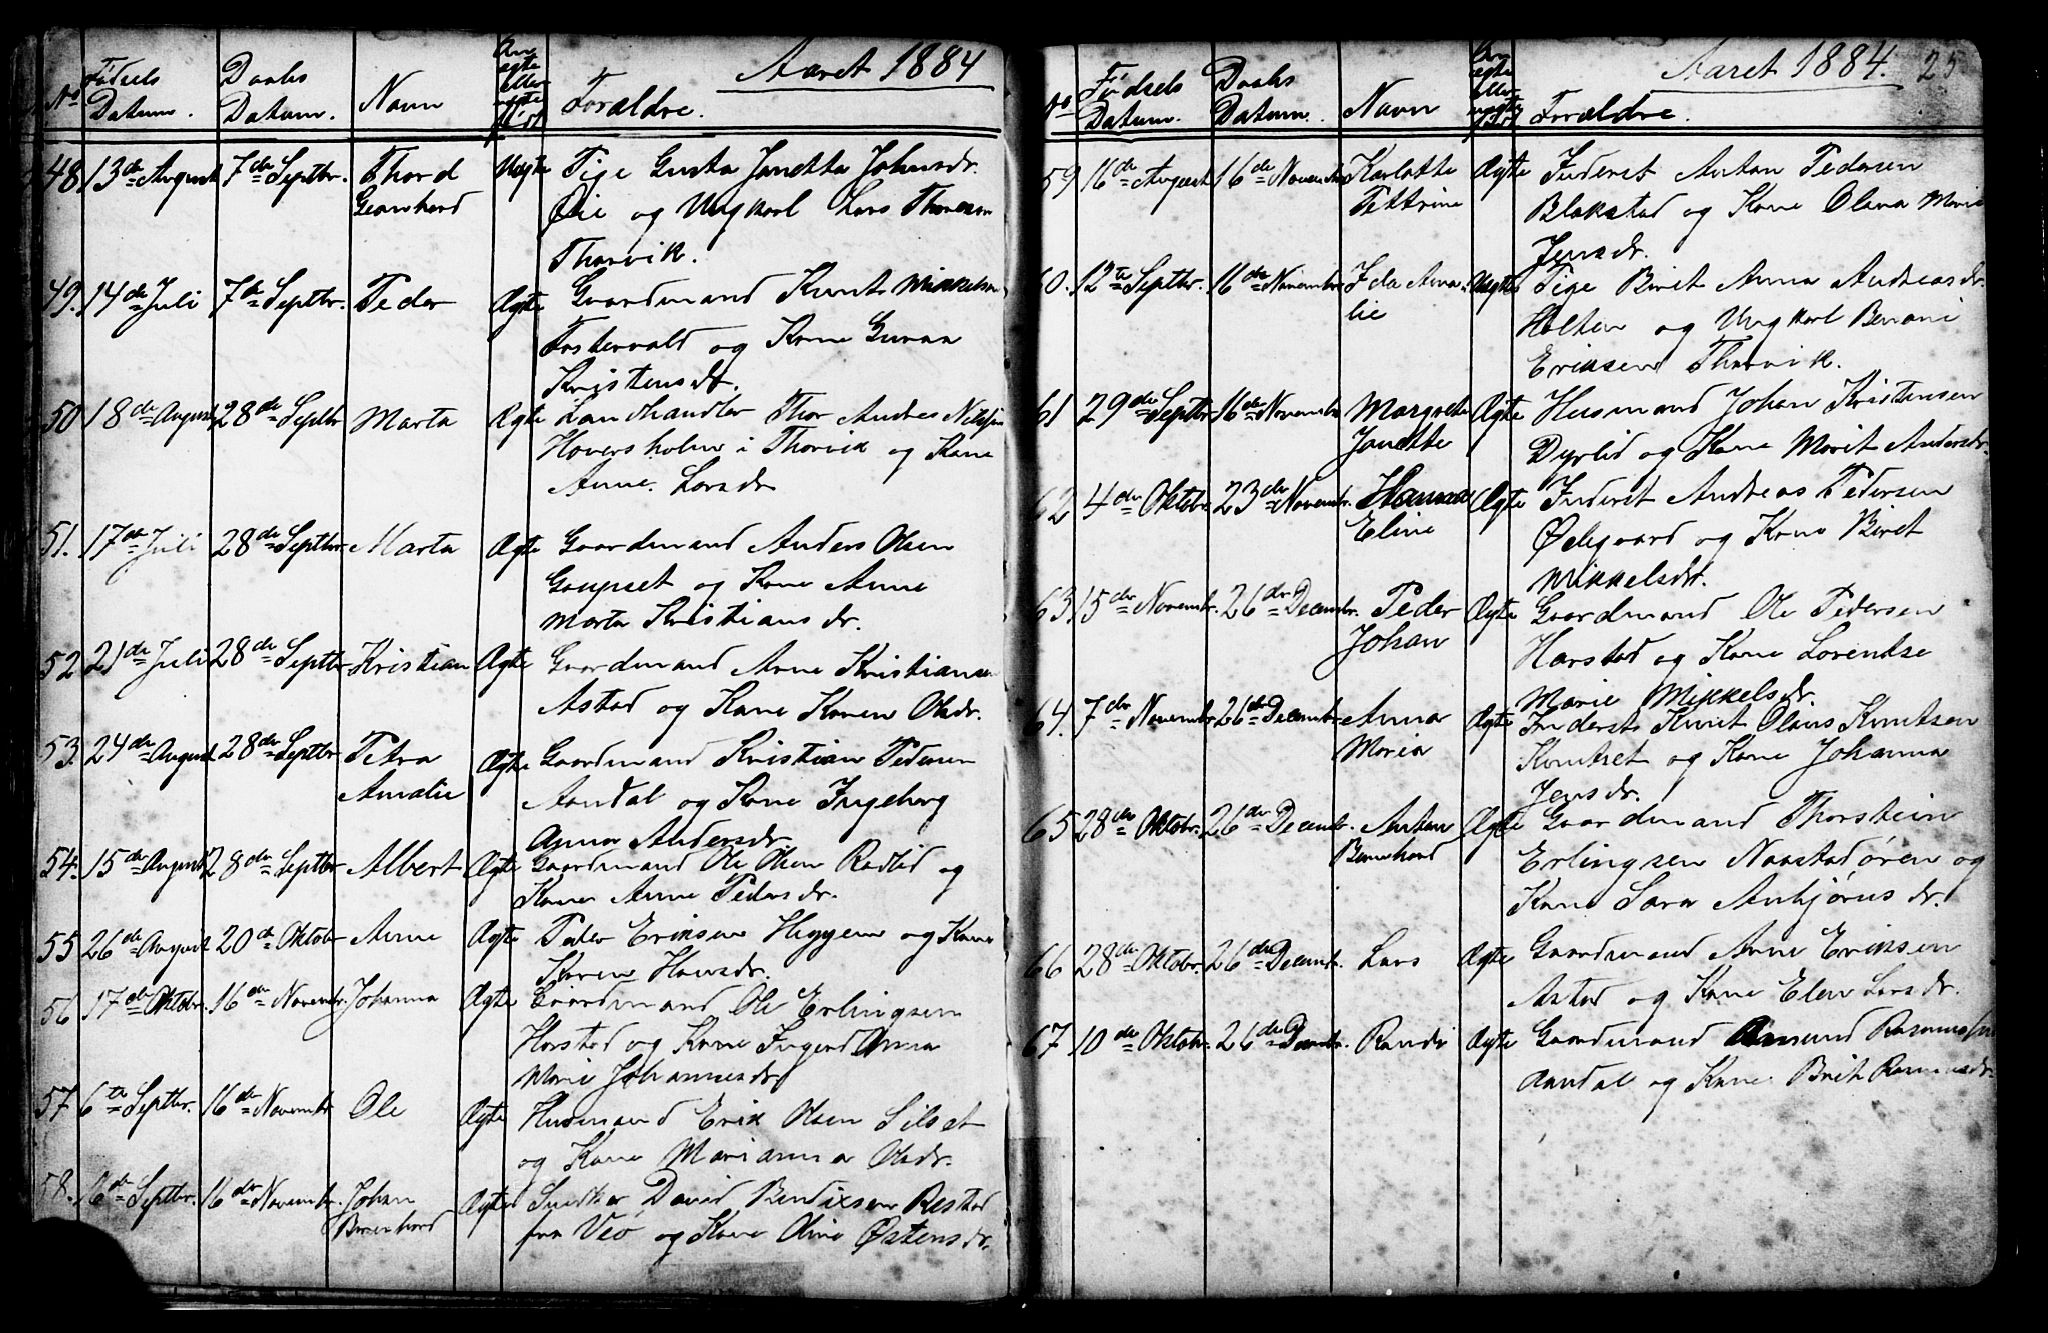 Aaret 1884
No
Fødsels
Datum.
Daabs
Datum.
Navn
Ægte
eller
Forældre.
48. 13de August 7de Septbr. Thord Uægte Pige Gusta Janetta Johnsdr.
Øie og Ungkarl Lars Thoresen
Thorvik.
49. 14de Juli 7de Septbr. Peder Ægte Gaardmand Knut Mikkelsen
Fostervold og Kone Guraa
Kristensdr.
50 18de August 28de Septbr Marta Ægte Landhandler Thor Andreas
Hoversholm i Thorvik og Kone
Anne Larsdr
51. 17de Juli 28de Septbr. Marta Ægte Gaardmand Anders Olsen
Gaupset og Kone Anne
Marta Kristiansdr.
52 21de Juli 28de Septbr Kristian Ægte Gaardmand Arne Kristiansen
Astad og Kone Karen Olsdr.
53. 24de August 28de Septbr Petra Ægte Gaardmand Kristian Pedersen
Amalie Aandal og Kone Ingeborg
Anna Andersdr.
54. 15de August 28de Septbr Albert Ægte Gaardmand Ole Olsen Rødlid og
Kone Anne Pedersdr.
55 26de August 20de Oktobr Anne Ægte Peder Eriksen Heggem og Kone
Karen Hansdr.
56 17de Oktobr. 16de Novembr. Johanna Ægte Gaardmand Ole Erlingsen
Harstad og Kone Ingerd Anna
Marie Johannesdr
57 6te Septbr. 16de Novembr Ole Ægte Husmand Erik Olsen Silset
og Kone Marianna Olsdr.
58. 16de Septbr. 16de Novembr. Johan Ægte Snedker David Bendixsen Restad
Bernhard fra Veø og Kone Oline Østensdr.
Aaret 1884. 25
No
Fødsels
Datum.
Daabs
Datum.
Navn
Ægte
eller
Forældre.
59 16de August 16de Novembr Karlotte Ægte Inderst Anton Pedersen
Pettrine Blakstad og Kone Olava Marie
Jensdr.
60. 12te Septbr. 16de Novembr Ida Ama- Uægte Pige Birit Anna Andreasdr.
lie Holten og Ungkarl Benoni
Eriksen Thorvik.
61 29de Septbr 16de Novembr Margrete Ægte Husmand Johan Kristensen
Janette Dyrlid og Kone Marit Andersdr.
62 4de Oktobr 23de Novembr. Hanna Ægte Inderst Andreas Pedersen
Eline Ødegaard og Kone Biret
Mikkelsdr.
63. 15de Novembr. 26de Decembr. Peder Ægte Gaardmand Ole Pedersen
Johan Harstad og Kone Lorentse
Marie Mikkelsdr.
64. 7de Novembr 26de Decembr Anna Ægte Inderst Knut Olaus Knutsen
Maria Knutset og Kone Johanna
Jensdr.
65 28de Oktobr. 26de Decembr. Anton Ægte Gaardmand Thorstein
Bernhard Erlingsen Naastadøren og
Kone Sara Anbjørnsdr.
66 28de Oktobr. 26de Decembr. Lars Ægte Gaardmand Arne Eriksen
Astad og Kone Elen Larsdr.
67 10de Oktobr. 26de Decembr Randi Ægte Gaardmand Amund Rasmussen
Aandal og Kone Brit Rasmusdr.